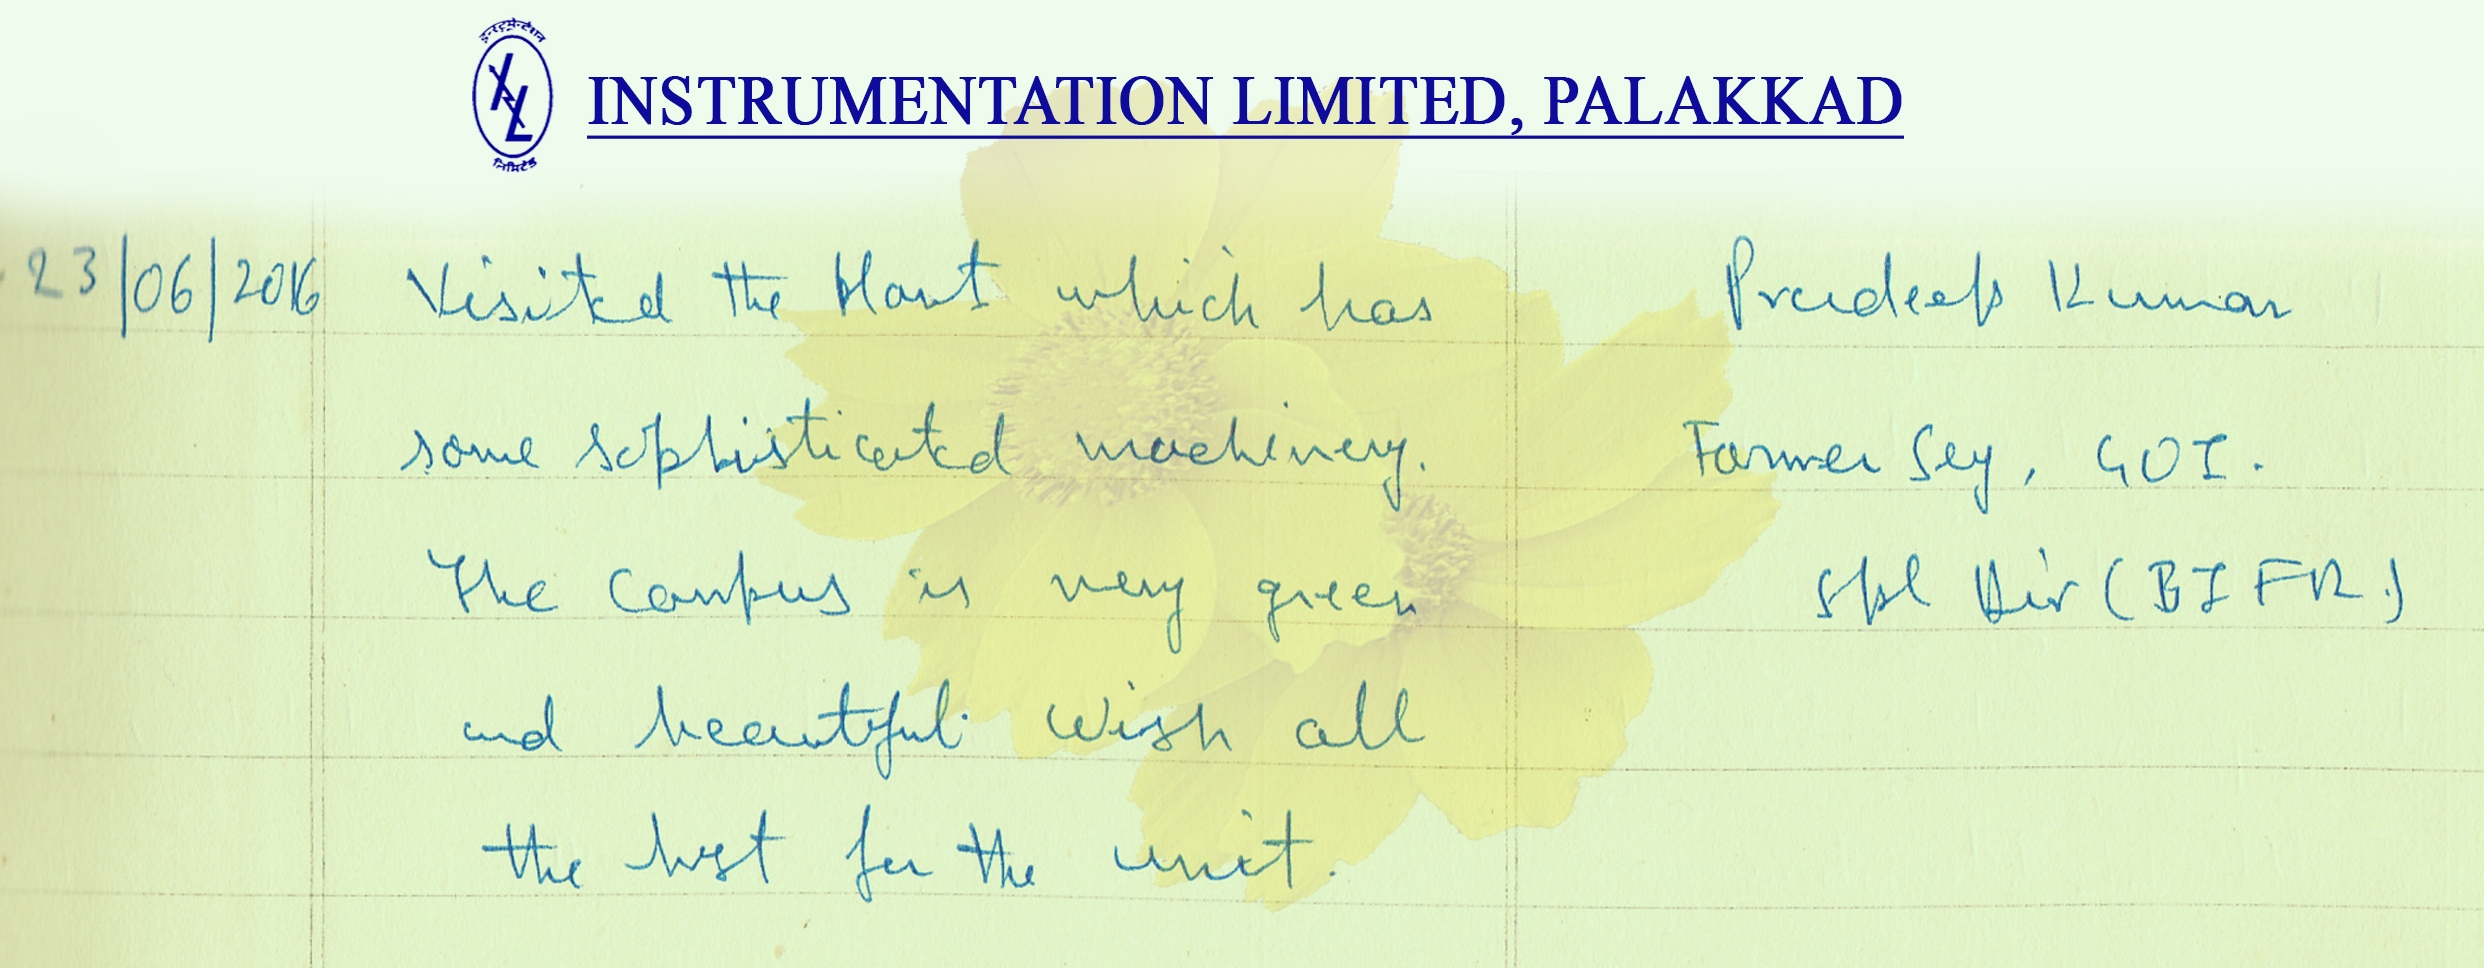 इन्स्ट्रूमेन्टेशन
IL
लिमिटेड
INSTRUMENTATION LIMITED, PALAKKAD
23/06/2016 Visited the Plant which has Pradeep Kumar
some sophisticated machinery. Former Secy, GOI.
The Campus is very green Spl Dir (BIFR.)
and beautiful. Wish all
the best for the unit.